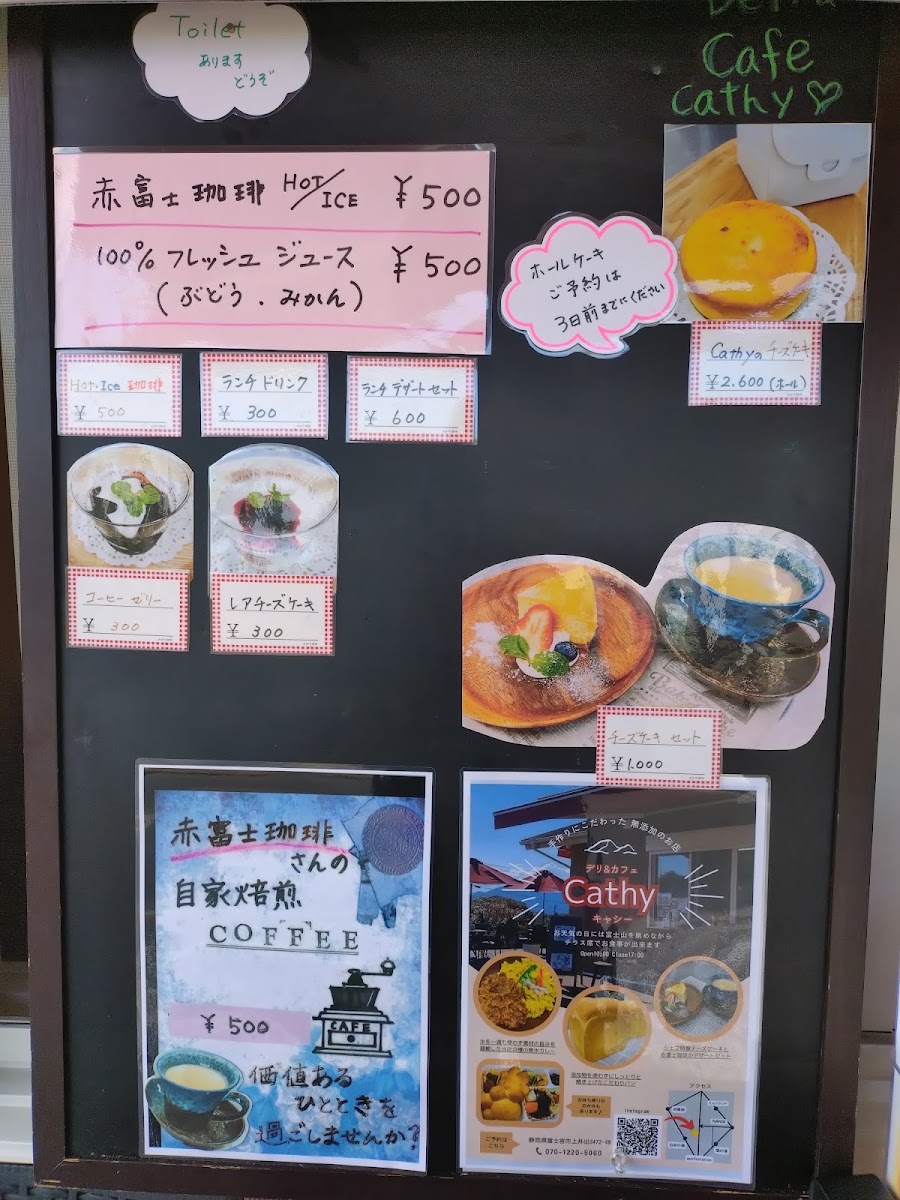 Toilet
あります
どうぞ
Cafe
Cathy♡
赤富士珈琲 HOT/ICE ¥500
100% フレッシュ ジュース ¥500
(ぶどう.みかん)
ホールケーキ
ご予約は
3日前までにください
Cathyの チーズケーキ
¥2.600(ホール)
Hot・Ice 珈琲
¥ 500
ランチ ドリンク
¥ 300
ランチ デザートセット
¥ 600
コーヒー ゼリー
¥ 300
レアチーズケーキ
¥ 300
チーズケーキ セット
¥1.000
赤富士珈琲
さんの
自家焙煎
COFFEE
¥ 500
CAFE
価値ある
ひとときを
過ごしませんか?
手作りにこだわった 無添加のお店
デリ&カフェ
Cathy
キャシー
お天気の日には富士山を眺めながら
テラス席でお食事が出来ます
Open10:00 Close17:00
シェフ特製チーズケーキと
赤富士珈琲のデザートセット
添加物を使わずにしっとりと
焼き上げたこだわりパン
アクセス
Instagram
ご予約は
こちら
070-1220-5060